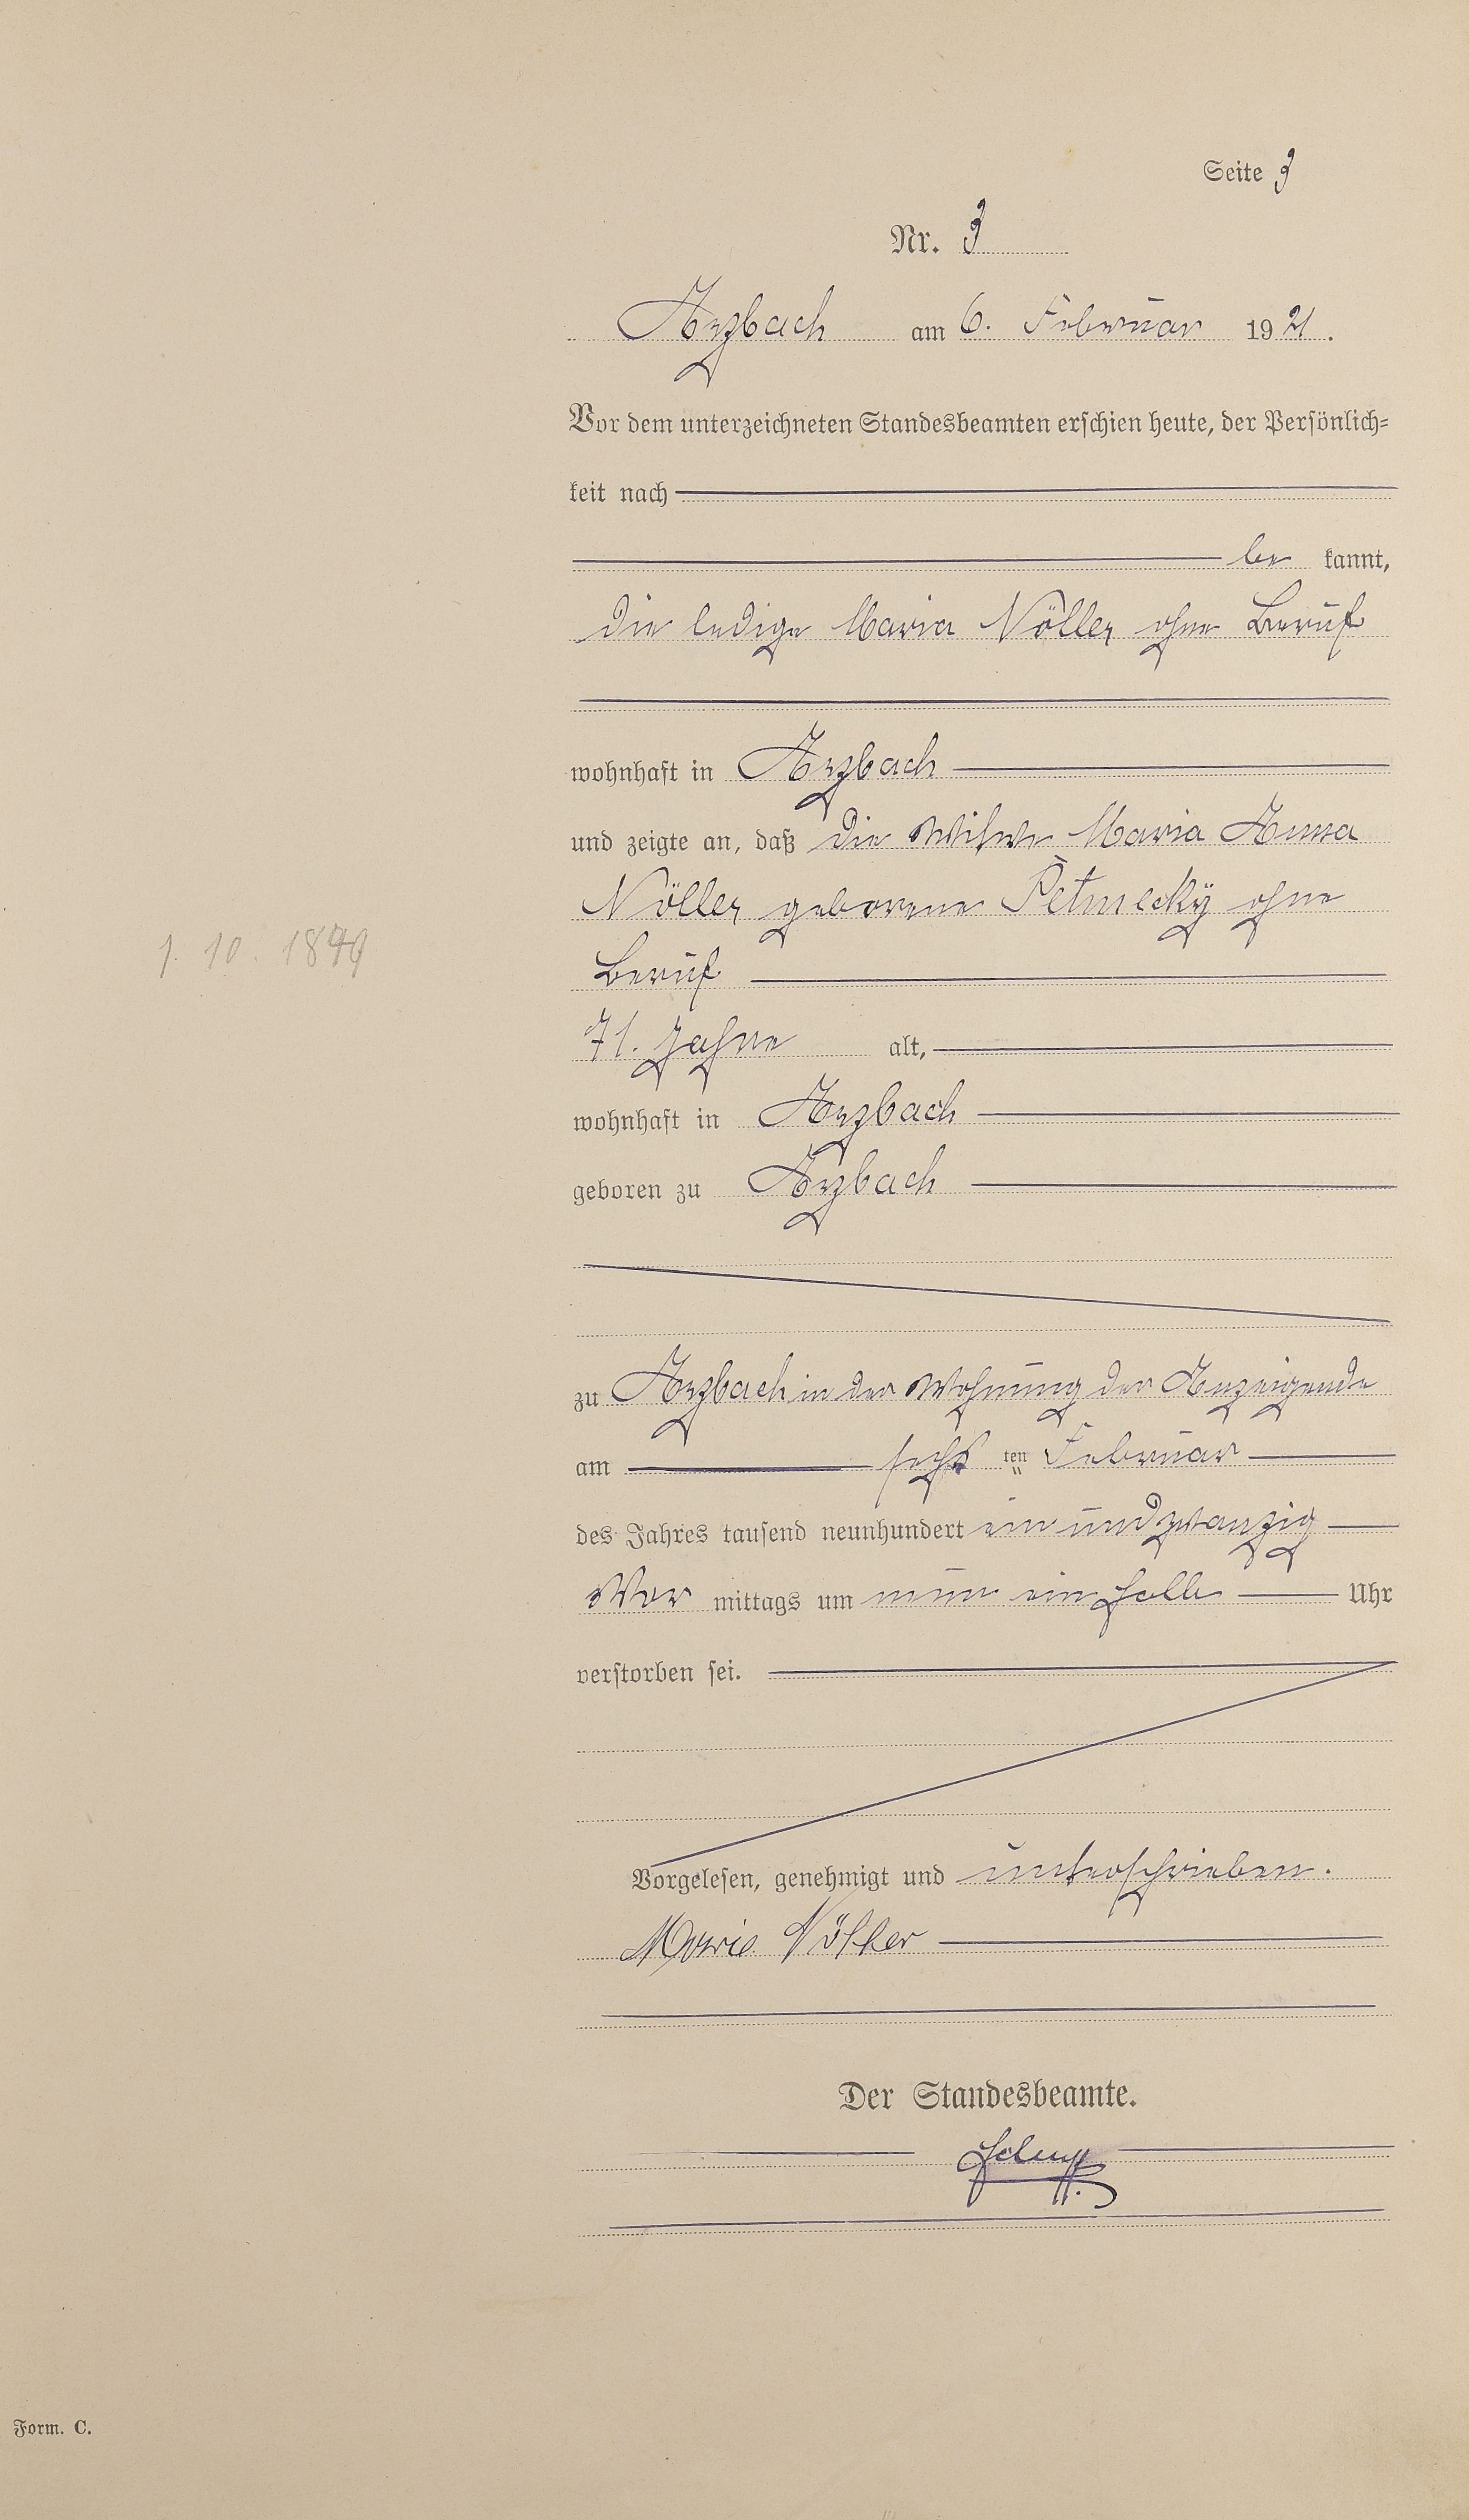 Seite 3
Nr. 3
Arzbach am 6. Februar 1921.
Vor dem unterzeichneten Standesbeamten erschien heute, der Persönlich=
keit nach
be kannt,
die ledige Maria Nöller ohne Beruf
wohnhaft in Arzbach
und zeigte an, daß die Witwe Maria Anna
Nöller geborene Petmecky ohne
1. 10. 1849
Beruf
71. Jahre alt,
wohnhaft in Arzbach
geboren zu Arzbach
zu Arzbach in der Wohnung der Anzeigende
am sechs ten Februar
des Jahres tausend neunhundert ein und zwanzig
Vor mittags um neun ein halb Uhr
verstorben sei.
Vorgelesen, genehmigt und unterschrieben.
Marie Nöller
Der Standesbeamte.
Form. C.